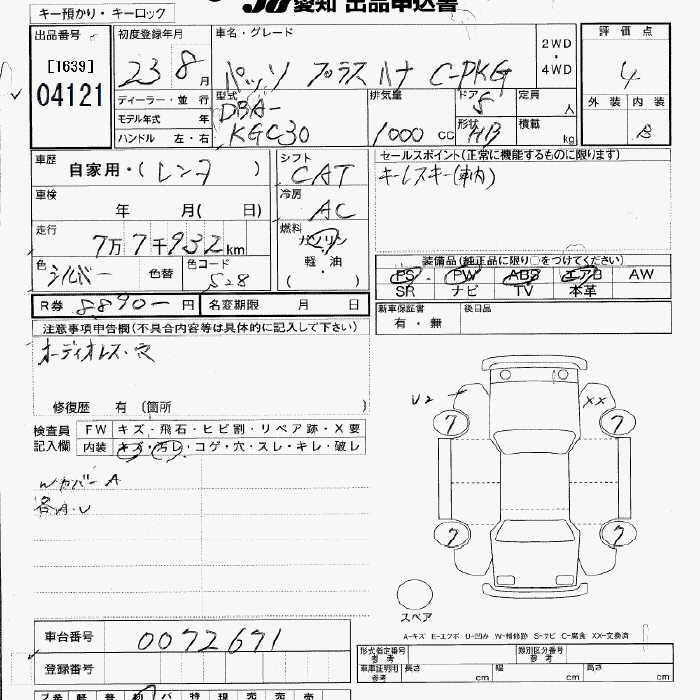 キー預かり・キーロック
愛知 出品申込書
出品番号
[1639]
04121
初度登録年月
23 8月
車名・グレード
パッソ プラスハナ C-PKG
2WD
・
4WD
評価点
4
外装 内装
B
ディーラー・並行
モデル年式 年
ハンドル 左・右
型式
DBA-
KGC30
排気量
1000 cc
ドア
5
形状
HB
定員
人
積載
kg
車歴
自家用・(レンタ)
車検
年 月( 日)
走行
7万7千932km
色
シルバー
色替
色コード
S28
シフト
CAT
冷房
AC
燃料
ガソリン
軽・油
( )
セールスポイント(正常に機能するものに限ります)
キーレスキー(車内)
装備品(純正品に限り○をつけてください)
PS PW ABS エアB AW
SR ナビ TV 本革
R券 8890- 円 名変期限 月 日
新車保証書
有・無
後日品
注意事項申告欄(不具合内容等は具体的に記入して下さい)
オーディオレス・穴
修復歴 有 〔箇所 〕
検査員
記入欄
FW キズ・飛石・ヒビ割・リペア跡・X要
内装 キズ・汚レ・コゲ・穴・スレ・キレ・破レ
Wカバー A
各A・U
U2
XX
7
7
7
7
スペア
A-キズ E-エクボ U-凹み W-補修跡 S-サビ C-腐食 XX-交換済
車台番号 0072671
登録番号
形式指定番号
参考
類別区分番号
参考
車庫証明用
参考
長さ cm
幅 cm
高さ cm